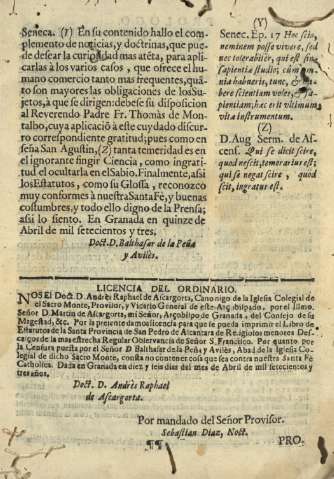 Seneca. (Y) En su contenido hallo el com-
plemento de noticias, y doctrinas, que pue-
de desear la curiosidad mas atẽta, para apli-
carlas à los varios casos, que ofrece el huma-
no comercio tanto mas frequentes, quã-
to son mayores las obligaciones de los Su-
jetos, à que se dirigen: debese su disposicion
al Reverendo Padre Fr. Thomàs de Mon-
talbo, cuya aplicaciò à este cuydado discur-
ro correspondiente gratitud; pues como en
seña San Agustin, (Z) tanta temeridad es en
el ignorante fingir Ciencia, como ingrati-
tud el ocultarla en el Sabio. Finalmente, assi
los Estatutos, como su Glossa, reconozco
muy conformes à nuestra Santa Fè, y buenas
costumbres, y todo ello digno de la Prensa;
assi lo siento. En Granada en quinze de
Abril de mil setecientos y tres.
Doct. D. Balthasar de la Peña
y Avilès.
(Y)
Senec. Ep. 17 Hoc scio,
neminem posse vivere, sed
nec tolerabiliter, qui est sine
sapientia studio; cum om-
nia habueris, tunc, & ha-
bere scientiam voles, & sa-
pientiam; hæc erit vltimum
vitæ instrumentum.
(Z)
D. Aug. Serm. de As-
cens. Qui se dicit scire,
quod nescit, temerarius est;
qui se negat scire, quod
scit, ingratus est.
LICENCIA DEL ORDINARIO.
NOS El Doct. D. Andrès Raphael de Ascargorta, Canonigo de la Iglesia Colegial de
el Sacro Monte, Provisor, y Vicario General de este Arçobispado, por el Ilmo.
Señor D. Martin de Ascargorta, mi Señor, Arçobispo de Granada, del Consejo de su
Magestad, &c. Por la presente damos licencia para que se pueda imprimir el Libro de
Estatutos de la Santa Provincia de San Pedro de Alcantara de Religiosos menores Des-
calços de la mas estrecha Regular Observancia de Señor S. Francisco. Por quanto por
la Censura puesta por el Señor D. Balthasar de la Peña y Avilès, Abad de la Iglesia Co-
legial de dicho Sacro Monte, consta no contener cosa que sea contra nuestra Santa Fè
Catholica. Dada en Granada en diez y seis dias del mes de Abril de mil setecientos y
tres años.
Doct. D. Andrès Raphael
de Ascargorta.
Por mandado del Señor Provisor.
Sebastian Diaz, Noct.
¶¶
PRO.